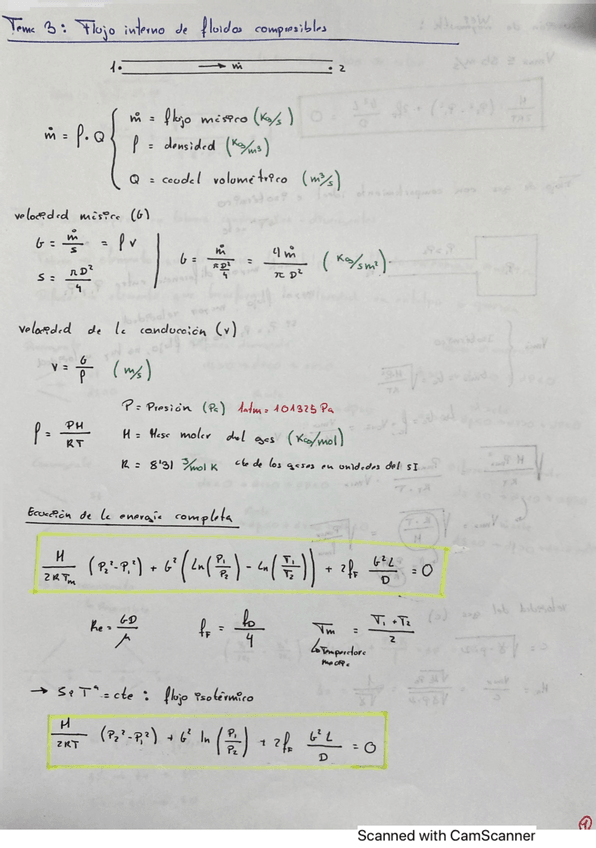 Tema 3: Flujo interno de fluidos compresibles
1 → ṁ 2
ṁ = ρ · Q { ṁ = flujo másico (Kg/s)
ρ = densidad (Kg/m³)
Q = caudal volumétrico (m³/s)
velocidad másica (G)
G = ṁ/S = ρ v | G = ṁ/(πD²/4) = 4ṁ/πD² (Kg/sm²)
S = πD²/4
velocidad de la conducción (v)
v = G/ρ (m/s)
P = Presión (Pa) 1atm = 101325 Pa
ρ = PM/RT M = Masa molar del gas (Kg/mol)
R = 8'31 J/mol K cte de los gases en unidades del SI
Ecuación de la energía completa
M/2RTm (P₂² - P₁²) + G² (Ln(P₁/P₂) - Ln(T₁/T₂)) + 2fF G²L/D = 0
Re = GD/μ fF = fD/4 Tm = T₁ + T₂/2
↳ Temperatura media
→ Si Tª = cte : flujo isotérmico
M/2RT (P₂² - P₁²) + G² ln(P₁/P₂) + 2fF G²L/D = 0
1
Scanned with CamScanner